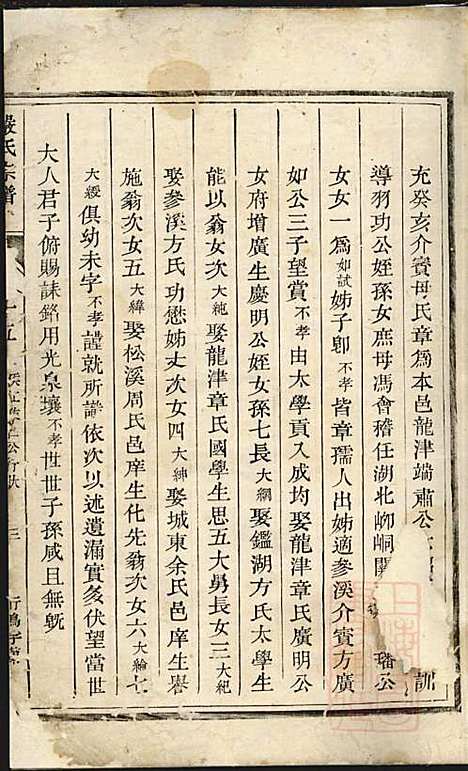 充癸亥介賓母氏章爲本邑龍津端肅公 訓
導羽功公姪孫女庶母馮會稽任湖北峒 璠公
女女一爲如試姊子卽不孝皆章孺人出姊適參溪介賓方廣
如公三子望賞不孝由太學貢入成均娶龍津章氏廣明公
女府增廣生慶明公姪女孫七長大綱娶鑑湖方氏太學生
能以翁女次大純娶龍津章氏國學生思五大舅長女三大紀
娶參溪方氏功懋姊丈次女四大紳娶城東余氏邑庠生譽
施翁次女五大緯娶松溪周氏邑庠生化先翁次女六大綸七
大綬俱幼未字不孝謹就所諭依次以述遺漏實多伏望當世
大人君子俯賜誄銘用光泉壤不孝世世子孫咸且無旣
嚴氏宗譜